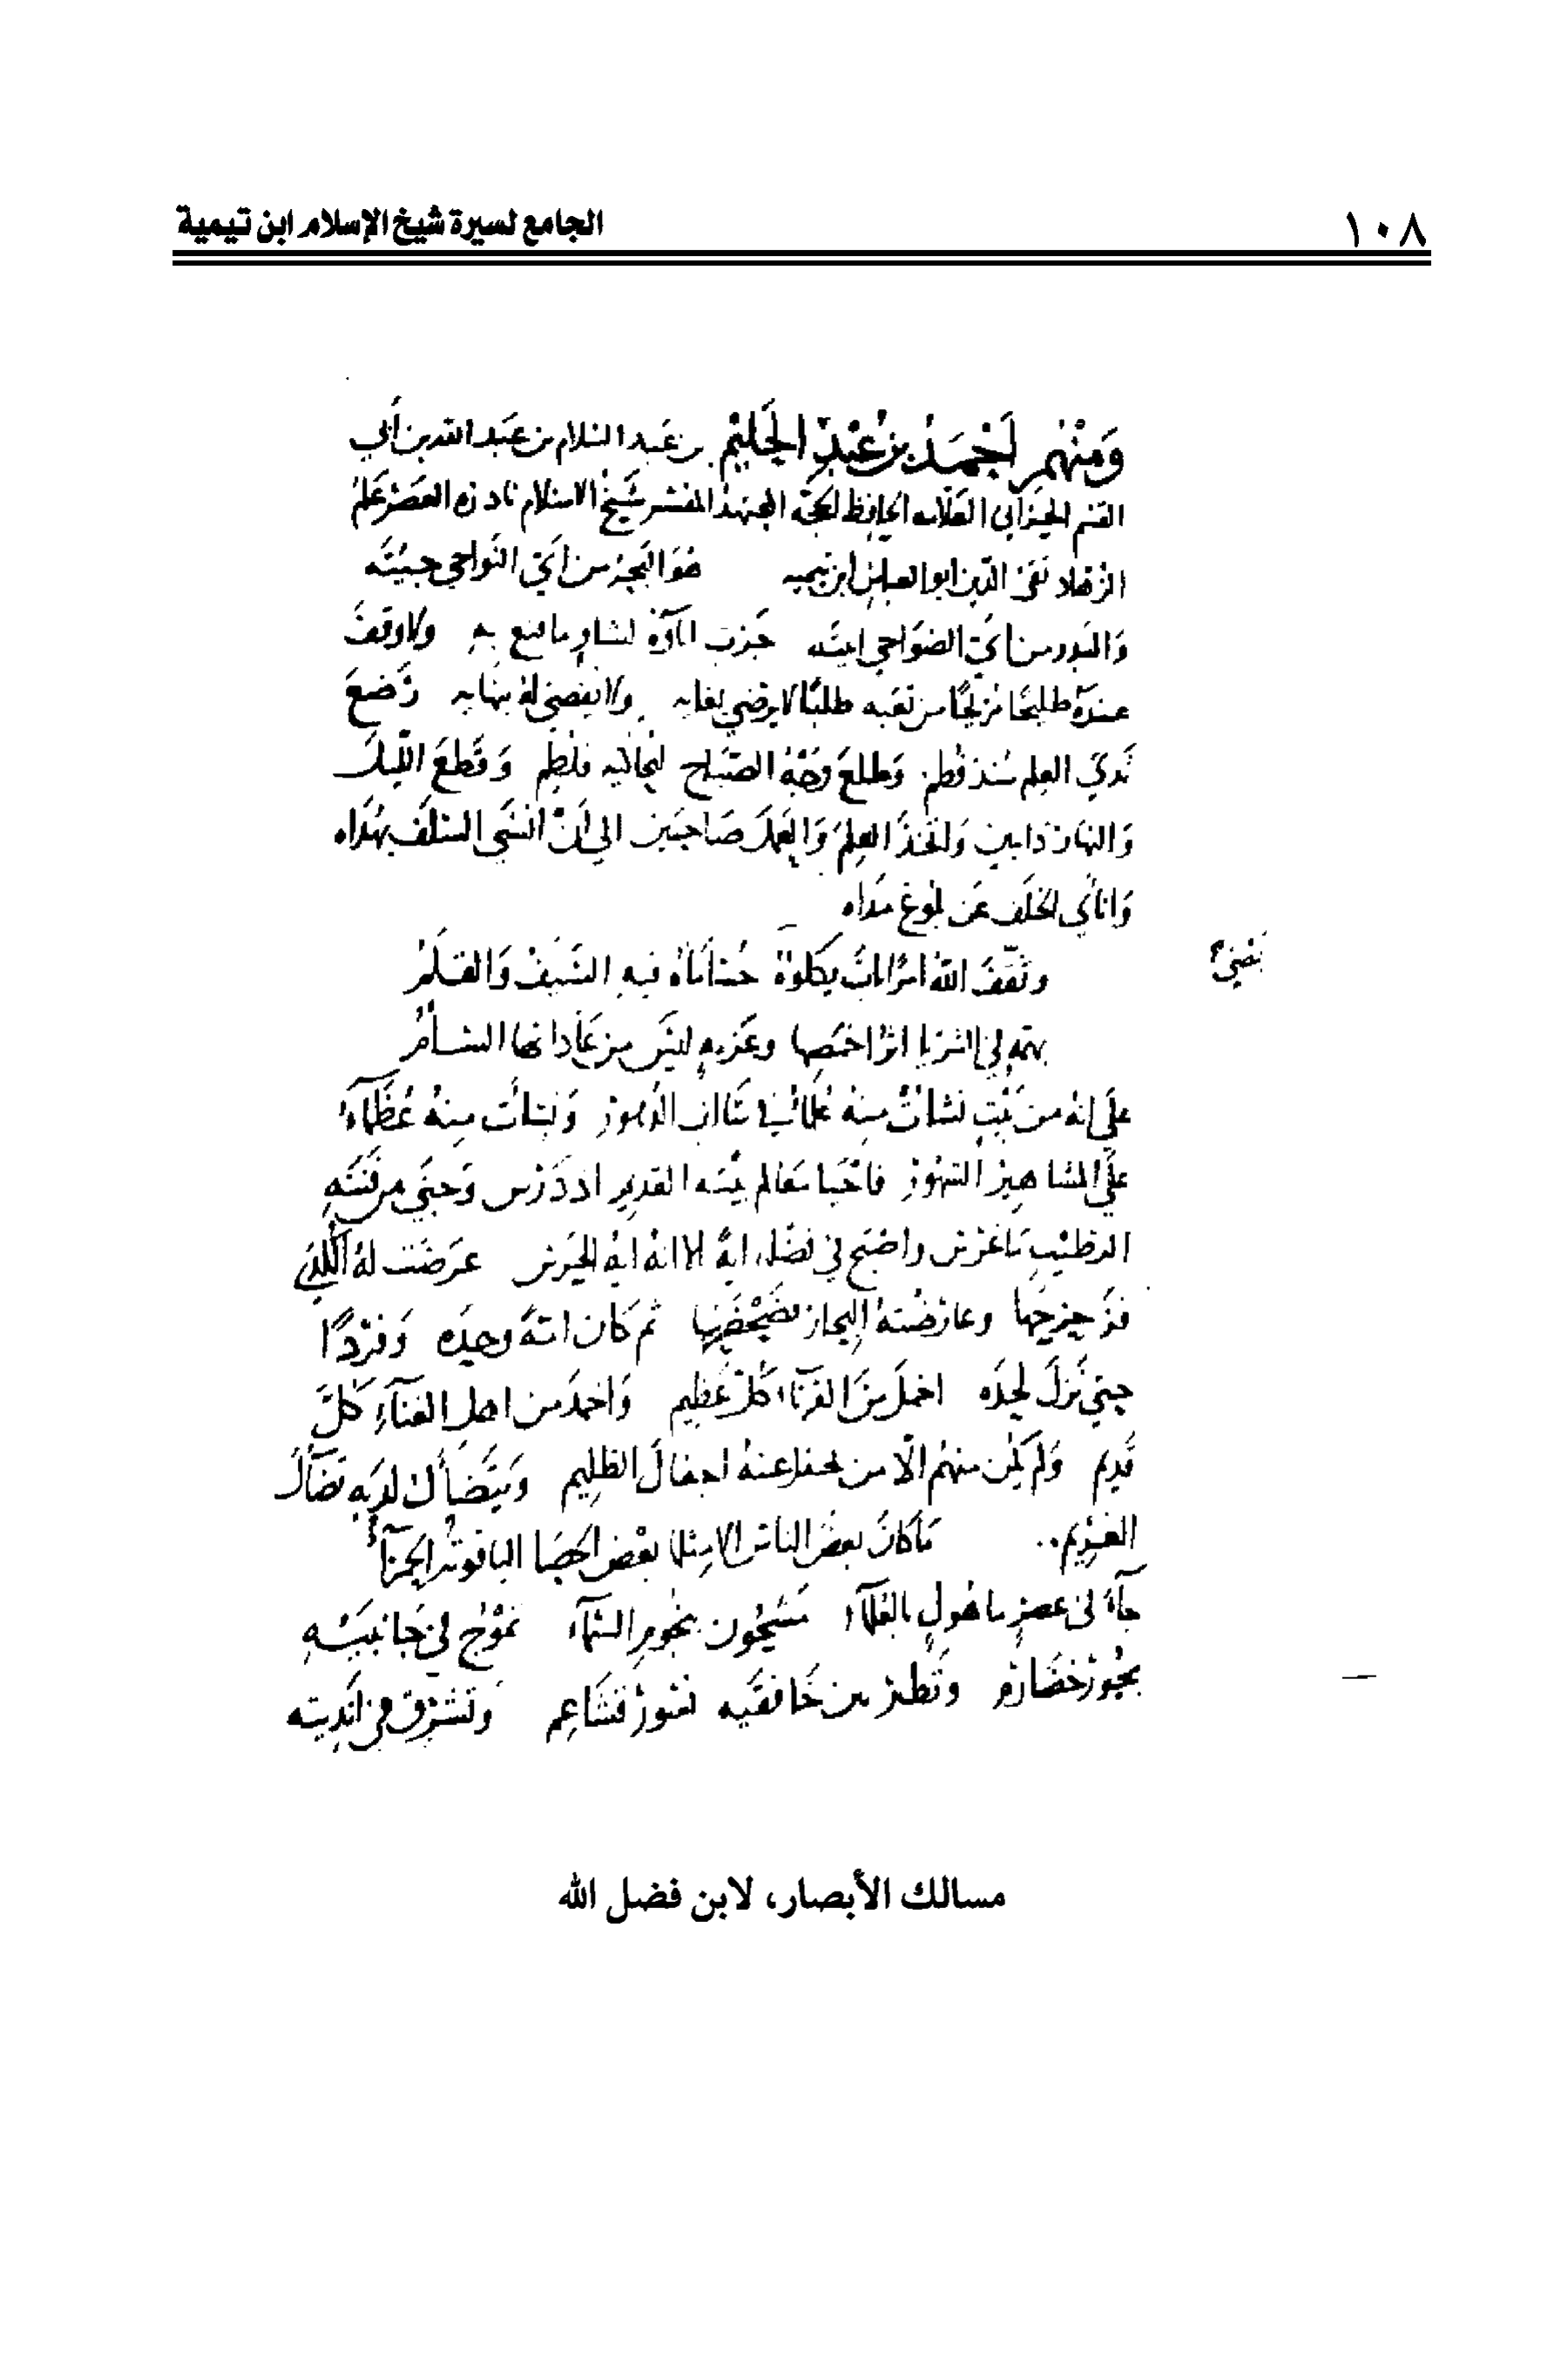 ١٠٨
الجامع لسيرة شيخ الإسلام ابن تيمية
ومنهم أحمد بن عبد الحليم بن عبد السلام بن عبد الله بن أبي
القسم الحراني العلامه الحافظ الحجة المجتهد المفسر شيخ الاسلام نادره العصر علم
الزهاد تقي الدين ابو العباس ابن تيميه هو البحر من اي النواحي جيته
والبدر من اي الضواحي اتيته جرت اباؤه لشاو ما قنع به ولا وقف
عنده طليحا مريحا من تعبه طلبا لا يرضى بغايه ولا يقضى له بنهايه رضع
ثدي العلم منذ فطم وطلع وجه الصباح ليحاكيه فلطم وقطع الليل
والنهار دايبين واتخذ العلم والعمل صاحبين الى ان انسى السلف بهداه
وانأى الخلف عن بلوغ مداه
وثقف الله امرا بات يكلؤه يمضي حساماه فيه السيف والقلم
بهمة في الثريا اثر اخمصها وعزمه ليس من عاداتها السأم
على انه من بيت نشأت منه علماء في سالف الدهور ونشأت منه عظماء
على المشاهير الشهور فأحيا معالم بيته القديم اذ درس وجنى من فننه
الرطيب ما غرس واصبح في فضله اية الا انه اية الحرس عرضت له الكدى
فزحزحها وعارضته البحار فضحضحها ثم كان امة وحده وفردا
حتى نزل لحده اخمل من القرناء كل عظيم واخمد من اهل الفناء كل
قديم ولم يكن منهم الا من يجفل عنه اجفال الظليم ويتضاءل لديه تضاؤل
الغريم ما كان بعض الناس الا مثلما بعض الحصا الياقوتة الحمرآء
جآء في عصر ماهول بالعلمآء مشحون بنجوم السمآء تموج في جانبيه
بحور خضارم وتطير بين خافقيه نسور قشاعم وتشرق في انديته
مسالك الأبصار، لابن فضل الله